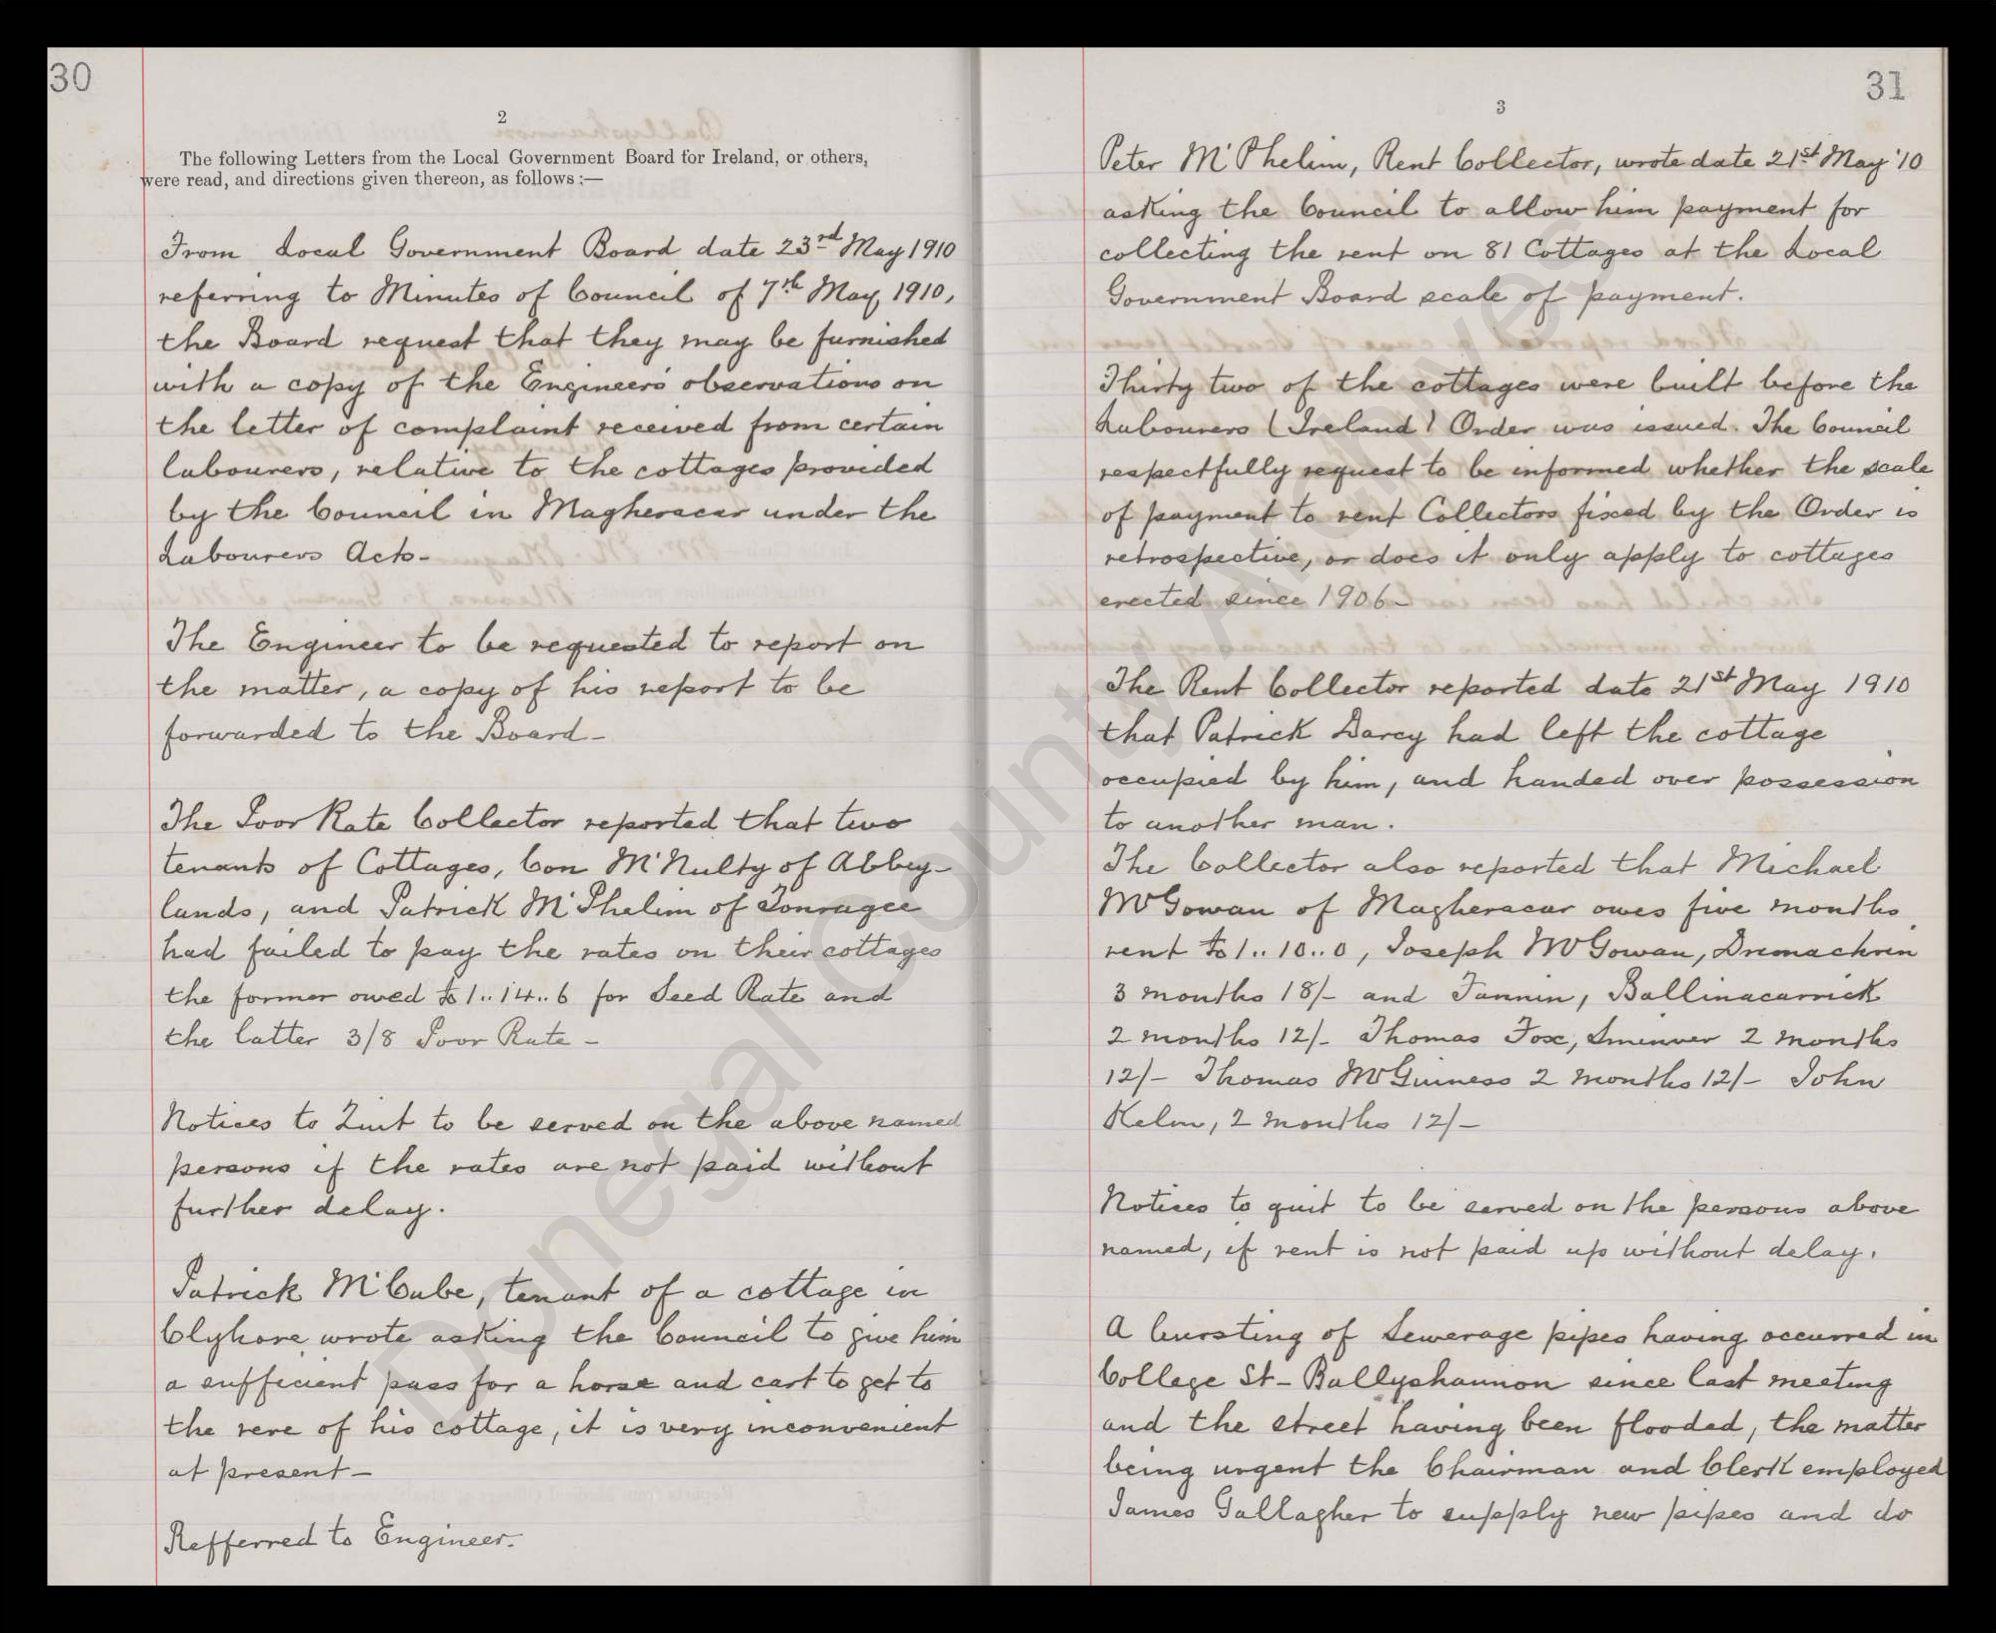 30
2
The following Letters from the Local Government Board for Ireland, or others,
were read, and directions given thereon, as follows :—
From Local Government Board date 23rd May 1910
referring to Minutes of Council of 7th May, 1910,
the Board request that they may be furnished
with a copy of the Engineers observations on
the letter of complaint received from certain
labourers, relative to the cottages provided
by the Council in Magheracar under the
Labourers Acts-
The Engineer to be requested to report on
the matter, a copy of his report to be
forwarded to the Board-
The Poor Rate Collector reported that two
tenants of Cottages, Con McNulty of Abbey-
lands, and Patrick McPhelim of Tonragee
had failed to pay the rates on their cottages
the former owed £1..14..6 for Seed Rate and
the latter 3/8 Poor Rate-
Notices to Quit to be served on the above named
persons if the rates are not paid without
further delay.
Patrick McCabe, tenant of a cottage in
Clyhore wrote asking the Council to give him
a sufficient pass for a horse and cart to get to
the rere of his cottage, it is very inconvenient
at present-
Refferred to Engineer.
31
3
Peter McPhelim, Rent Collector, wrote date 21st May '10
asking the Council to allow him payment for
collecting the rent on 81 Cottages at the Local
Government Board scale of payment.
Thirty two of the cottages were built before the
Labourers (Ireland) Order was issued. The Council
respectfully request to be informed whether the scale
of payment to rent Collectors fixed by the Order is
retrospective, or does it only apply to cottages
erected since 1906-
The Rent Collector reported date 21st May 1910
that Patrick Darcy had left the cottage
occupied by him, and handed over possession
to another man.
The Collector also reported that Michael
McGowan of Magheracar owes five months
rent £1..10..0, Joseph McGowan, Drumachrin
3 months 18/- and Fannin, Ballinacarrick
2 months 12/- Thomas Fox, 2 months
12/- Thomas McGuiness 2 months 12/- John
2 months 12/-
Notices to quit to be served on the persons above
named, if rent is not paid up without delay.
A bursting of Sewerage pipes having occurred in
College St- Ballyshannon since last meeting
and the street having been flooded, the matter
being urgent the Chairman and Clerk employed
James Gallagher to supply new pipes and do
Donegal County Archives